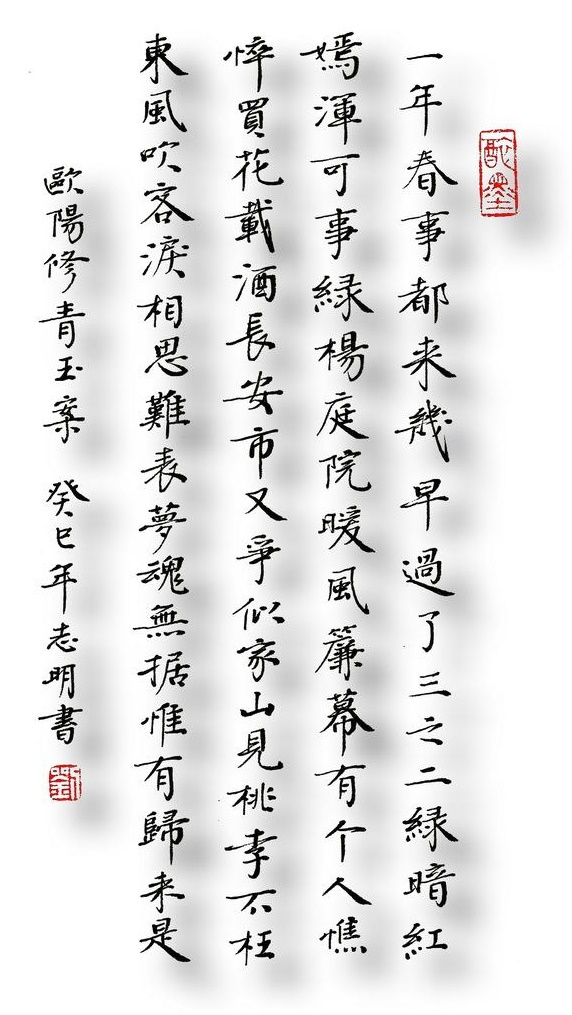 酡墨
一年春事都来幾早過了三之二緑暗紅
嫣渾可事緑楊庭院暖風簾幕有个人憔
悴買花載酒長安市又爭似家山見桃李不枉
東風吹客淚相思難表夢魂無据惟有歸来是
歐陽修青玉案 癸巳年志明書
劉